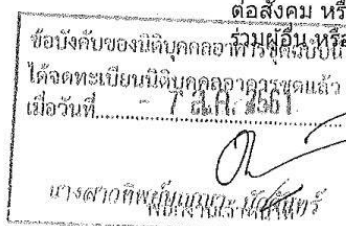 ต่อสังคม หรื
ร่วมผู้อื่น หรือ
ข้อบังคับของนิติบุคคลอาคารชุดฉบับนี้
ได้จดทะเบียนนิติบุคคลอาคารชุดแล้ว
เมื่อวันที่ - 7 ส.ค. 2561
นางสาว
พนักงานเจ้าหน้าที่